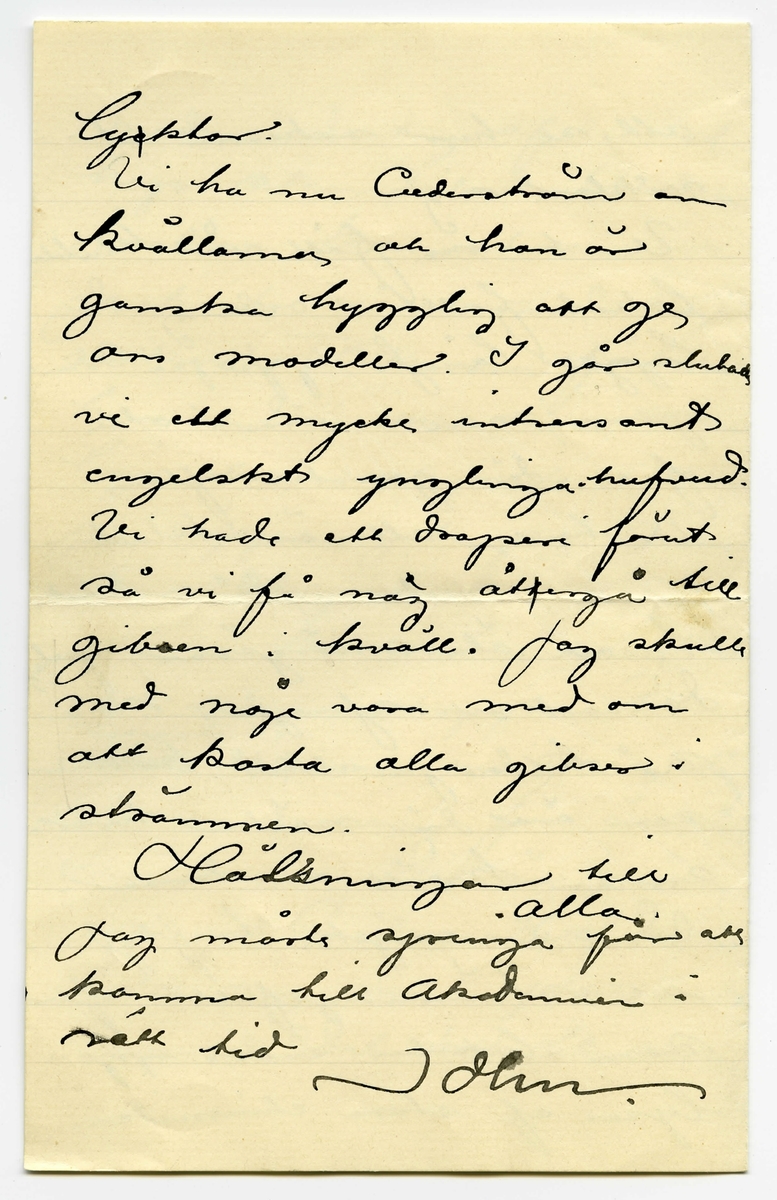 lycktor.
Vi ha nu Cederström om
kvällarna och han är
ganska hygglig att ge
oss modeller. I går slutade
vi ett mycke intressant
engelskt ynglinga-hufvud.
Vi hade ett draperi förut
så vi få nog återgå till
gibsen i kväll. Jag skulle
med nöje vara med om
att kasta alla gibser i
strömmen.
Hälsningar till
alla.
Jag måste springa för att
komma till Akademien i
rätt tid
John.